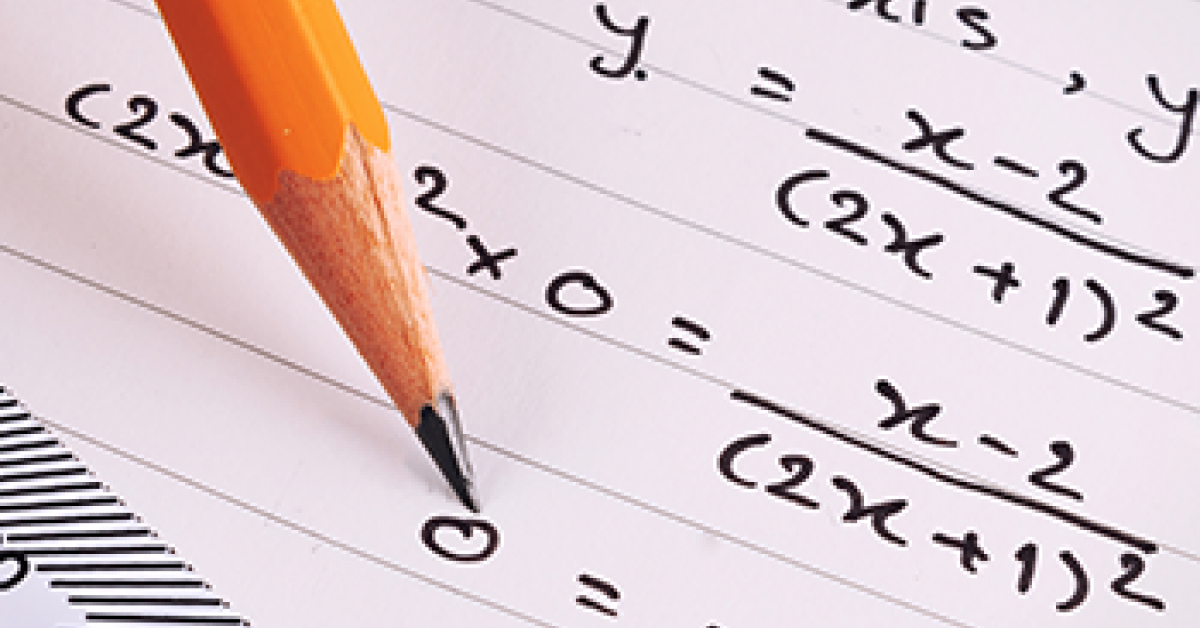 is, y
y. = x-2 / (2x+1)²
(2x ²×0 = x-2 / (2x+1)²
0 =